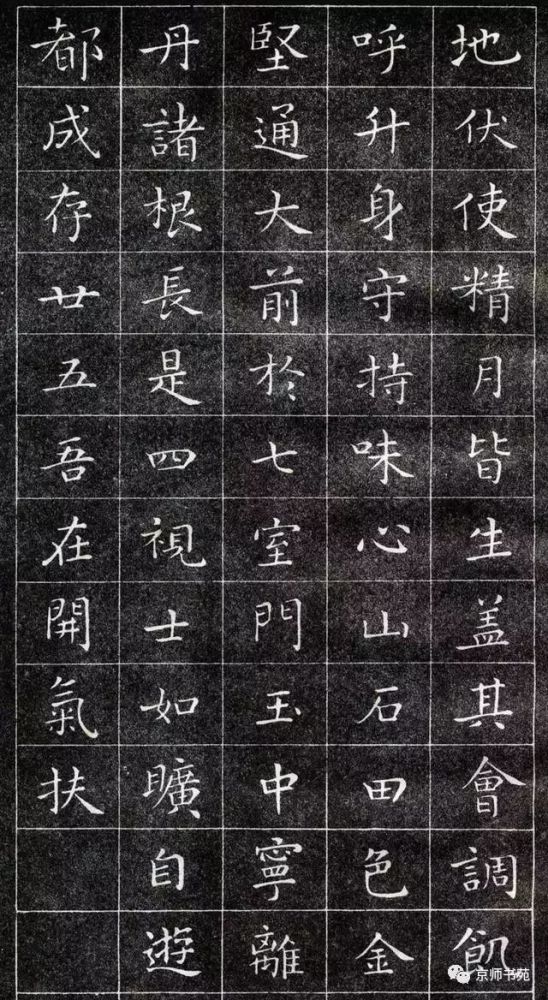 地伏使精月皆生盖其會調飢
呼升身守持味心山石田色金
堅通大前於七室門玉中寧離
丹諸根長是四視士如曠自遊
都成存廿五吾在開氣扶
京师书苑